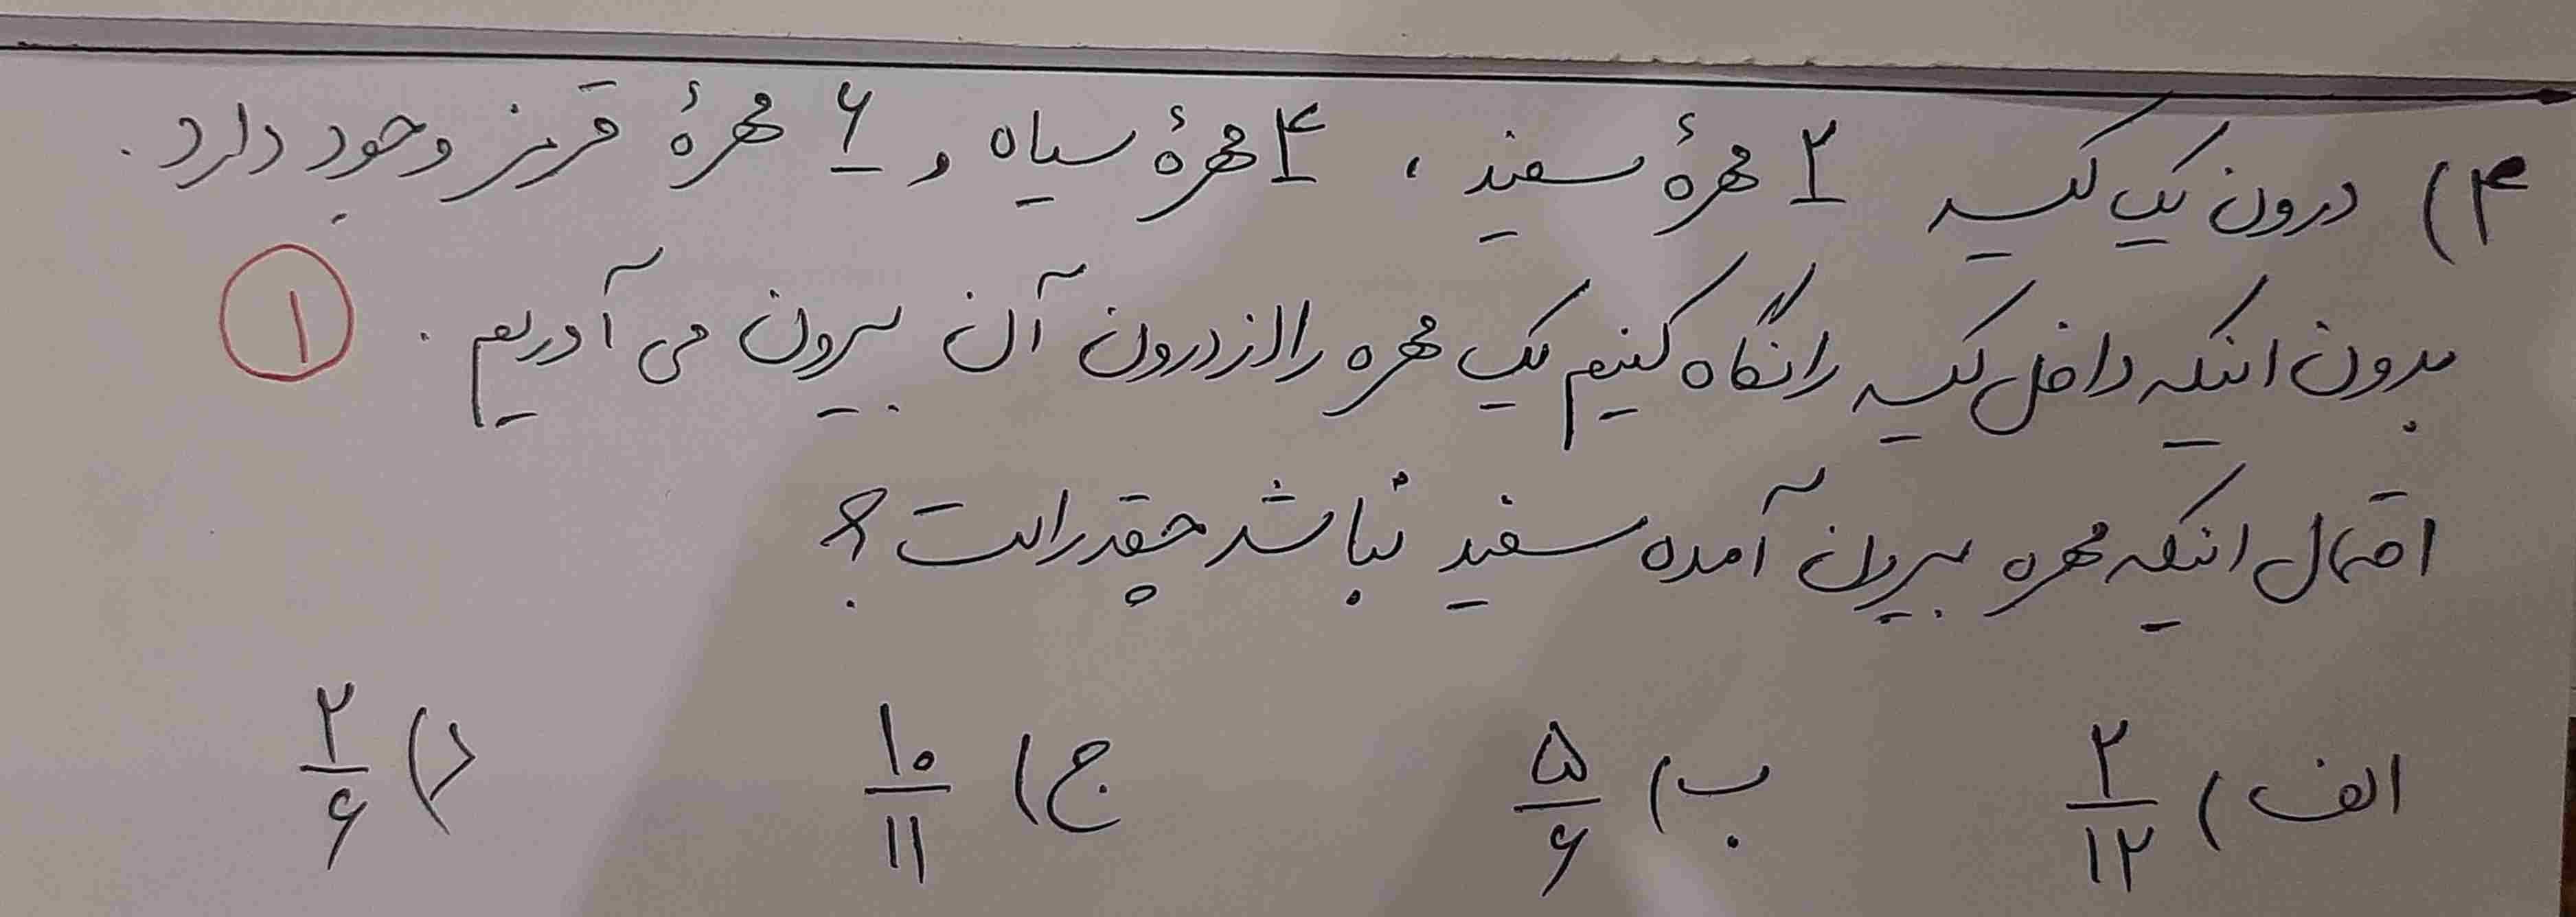 ۴) درون یک کیسه ۲ مهرهٔ سفید ، ۴ مهرهٔ سیاه و ۶ مهرهٔ قرمز وجود دارد .
بدون اینکه داخل کیسه را نگاه کنیم یک مهره را از درون آن بیرون می آوریم . ۱
احتمال اینکه مهره بیرون آمده سفید نباشد چقدر است ؟
الف) ۲/۱۲ ب) ۵/۶ ج) ۱۰/۱۱ د) ۲/۶